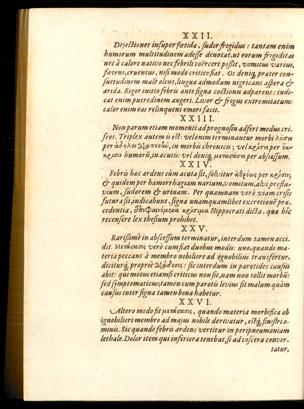 XXII.
Dejectiones insuper fœtida, sudor frigidus: tantam enim
humorum multitudinem adesse denotat, ut eorum frigiditas
nec à calore nativo nec febrili coërceri possit, vomitus varius,
fœtens, cruentus, nisi modo critico fiat. Os deniq; præter con-
suetudinem malè olens, lingua admodum nigricans aspera &
arida. Rigor initio febris ante signa coctionis adparens: indi-
cat enim putredinem augeri. Livor & frigus extremitatum:
calor enim eas relinquens emori facit.
XXIII.
Non parum etiam momenti ad prognosin adfert modus cri-
seos. Triplex autem is est: velenim terminantur morbi λύσει
per in morbis chronicis; vel κρίσει per
humoris in acutis: vel deniq; per abscessum.
XXIV.
Febris hac ardens cùm acuta sit, solvitur per κρίσιν;
& quidem per hæmorrhagiam narium, vomitum, alvi proflu-
vium, sudorem & urinam. Per quamnam verò viam crisis
futura sit, indicabunt, signa unamquamlibet excretionē præ-
cedentia, Hippocrati dicta: quæ hic
recensere lex thesium prohibet.
XXV.
Rarissimè in abscessum terminatur, interdum tamen acci-
dit. verò cum fiat duobus modis: uno, quando ma-
teria peccans à membro nobiliore ad ignobilius transfertur,
diciturq; propriè sic interdum in partitæ causus
abit: qui motus etiamsi criticus non sit, nam non tollit morbū:
sed symptomaticus; tamen cum paretis levius sit malum quàm
causus inter signa tamen bona habetur.
XXVI.
Altero modo fit quando materia morbifica ab
ignobiliori membro ad majus nobile derivatur, estq́; sinistri o-
minis. Sic quando febris ardens vertitur in peripneumoniam
lethale. Dolor item qui inferiora tenebat, si ad viscera conver-
tatur,